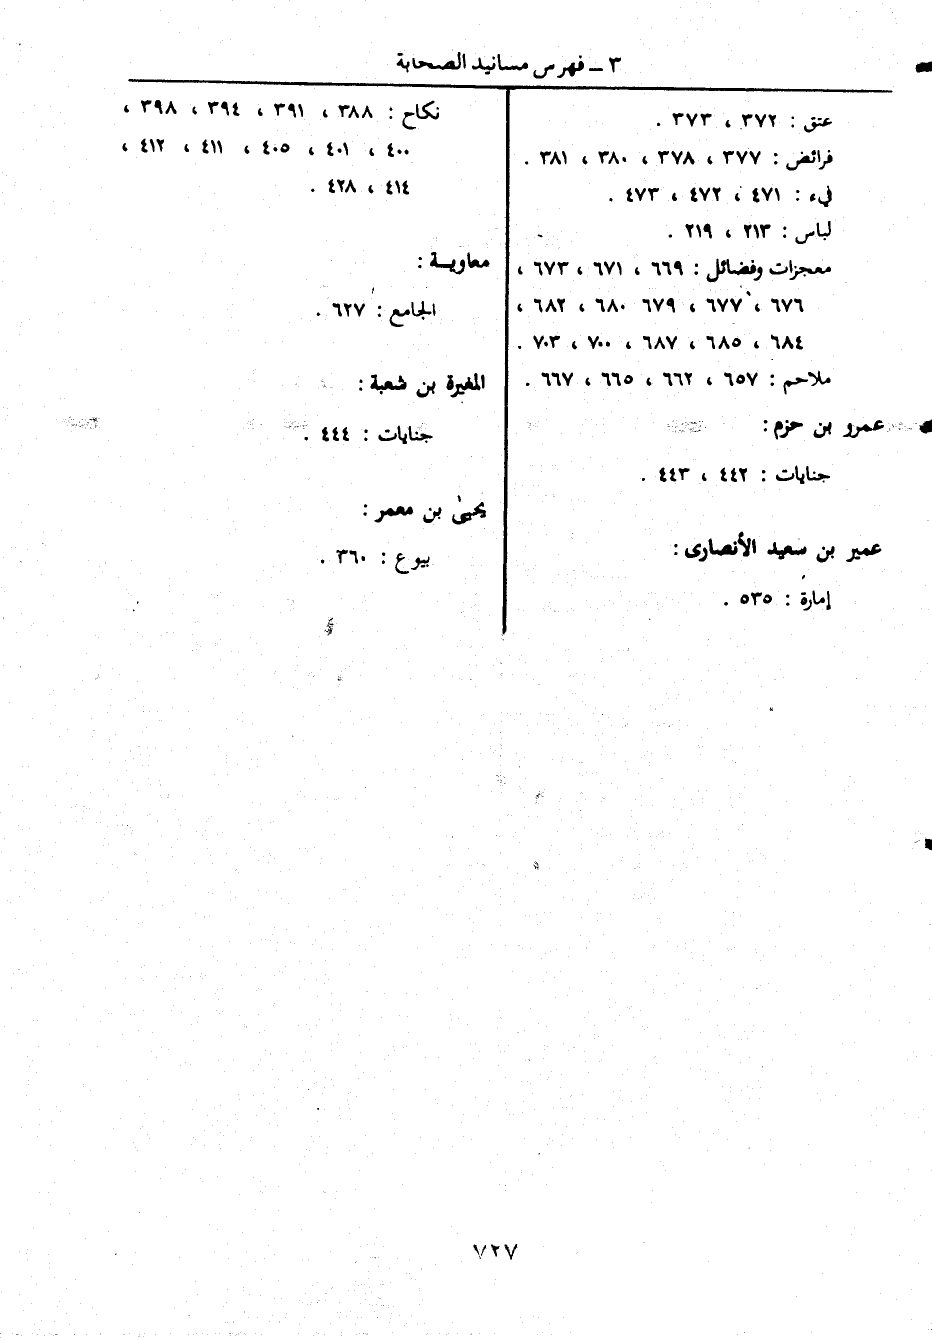 ٣ ــ فهرس مسانيد الصحابة
عتق : ٣٧٢ ، ٣٧٣ .
فرائض : ٣٧٧ ، ٣٧٨ ، ٣٨٠ ، ٣٨١ .
فيء : ٤٧١ ، ٤٧٢ ، ٤٧٣ .
لباس : ٢١٣ ، ٢١٩ .
معجزات وفضائل : ٦٦٩ ، ٦٧١ ، ٦٧٣ ،
٦٧٦ ، ٦٧٧ ، ٦٧٩ ٦٨٠ ، ٦٨٢ ،
٦٨٤ ، ٦٨٥ ، ٦٨٧ ، ٧٠٠ ، ٧٠٣ .
ملاحم : ٦٥٧ ، ٦٦٢ ، ٦٦٥ ، ٦٦٧ .
عمرو بن حزم :
جنايات : ٤٤٢ ، ٤٤٣ .
عمير بن سعيد الأنصارى :
إمارة : ٥٣٥ .
نكاح : ٣٨٨ ، ٣٩١ ، ٣٩٤ ، ٣٩٨ ،
٤٠٠ ، ٤٠١ ، ٤٠٥ ، ٤١١ ، ٤١٢ ،
٤١٤ ، ٤٢٨ .
معاويــة :
الجامع : ٦٢٧ .
المغيرة بن شعبة :
جنايات : ٤٤٤ .
يحيىٰ بن معمر :
بيوع : ٣٦٠ .
٧٢٧